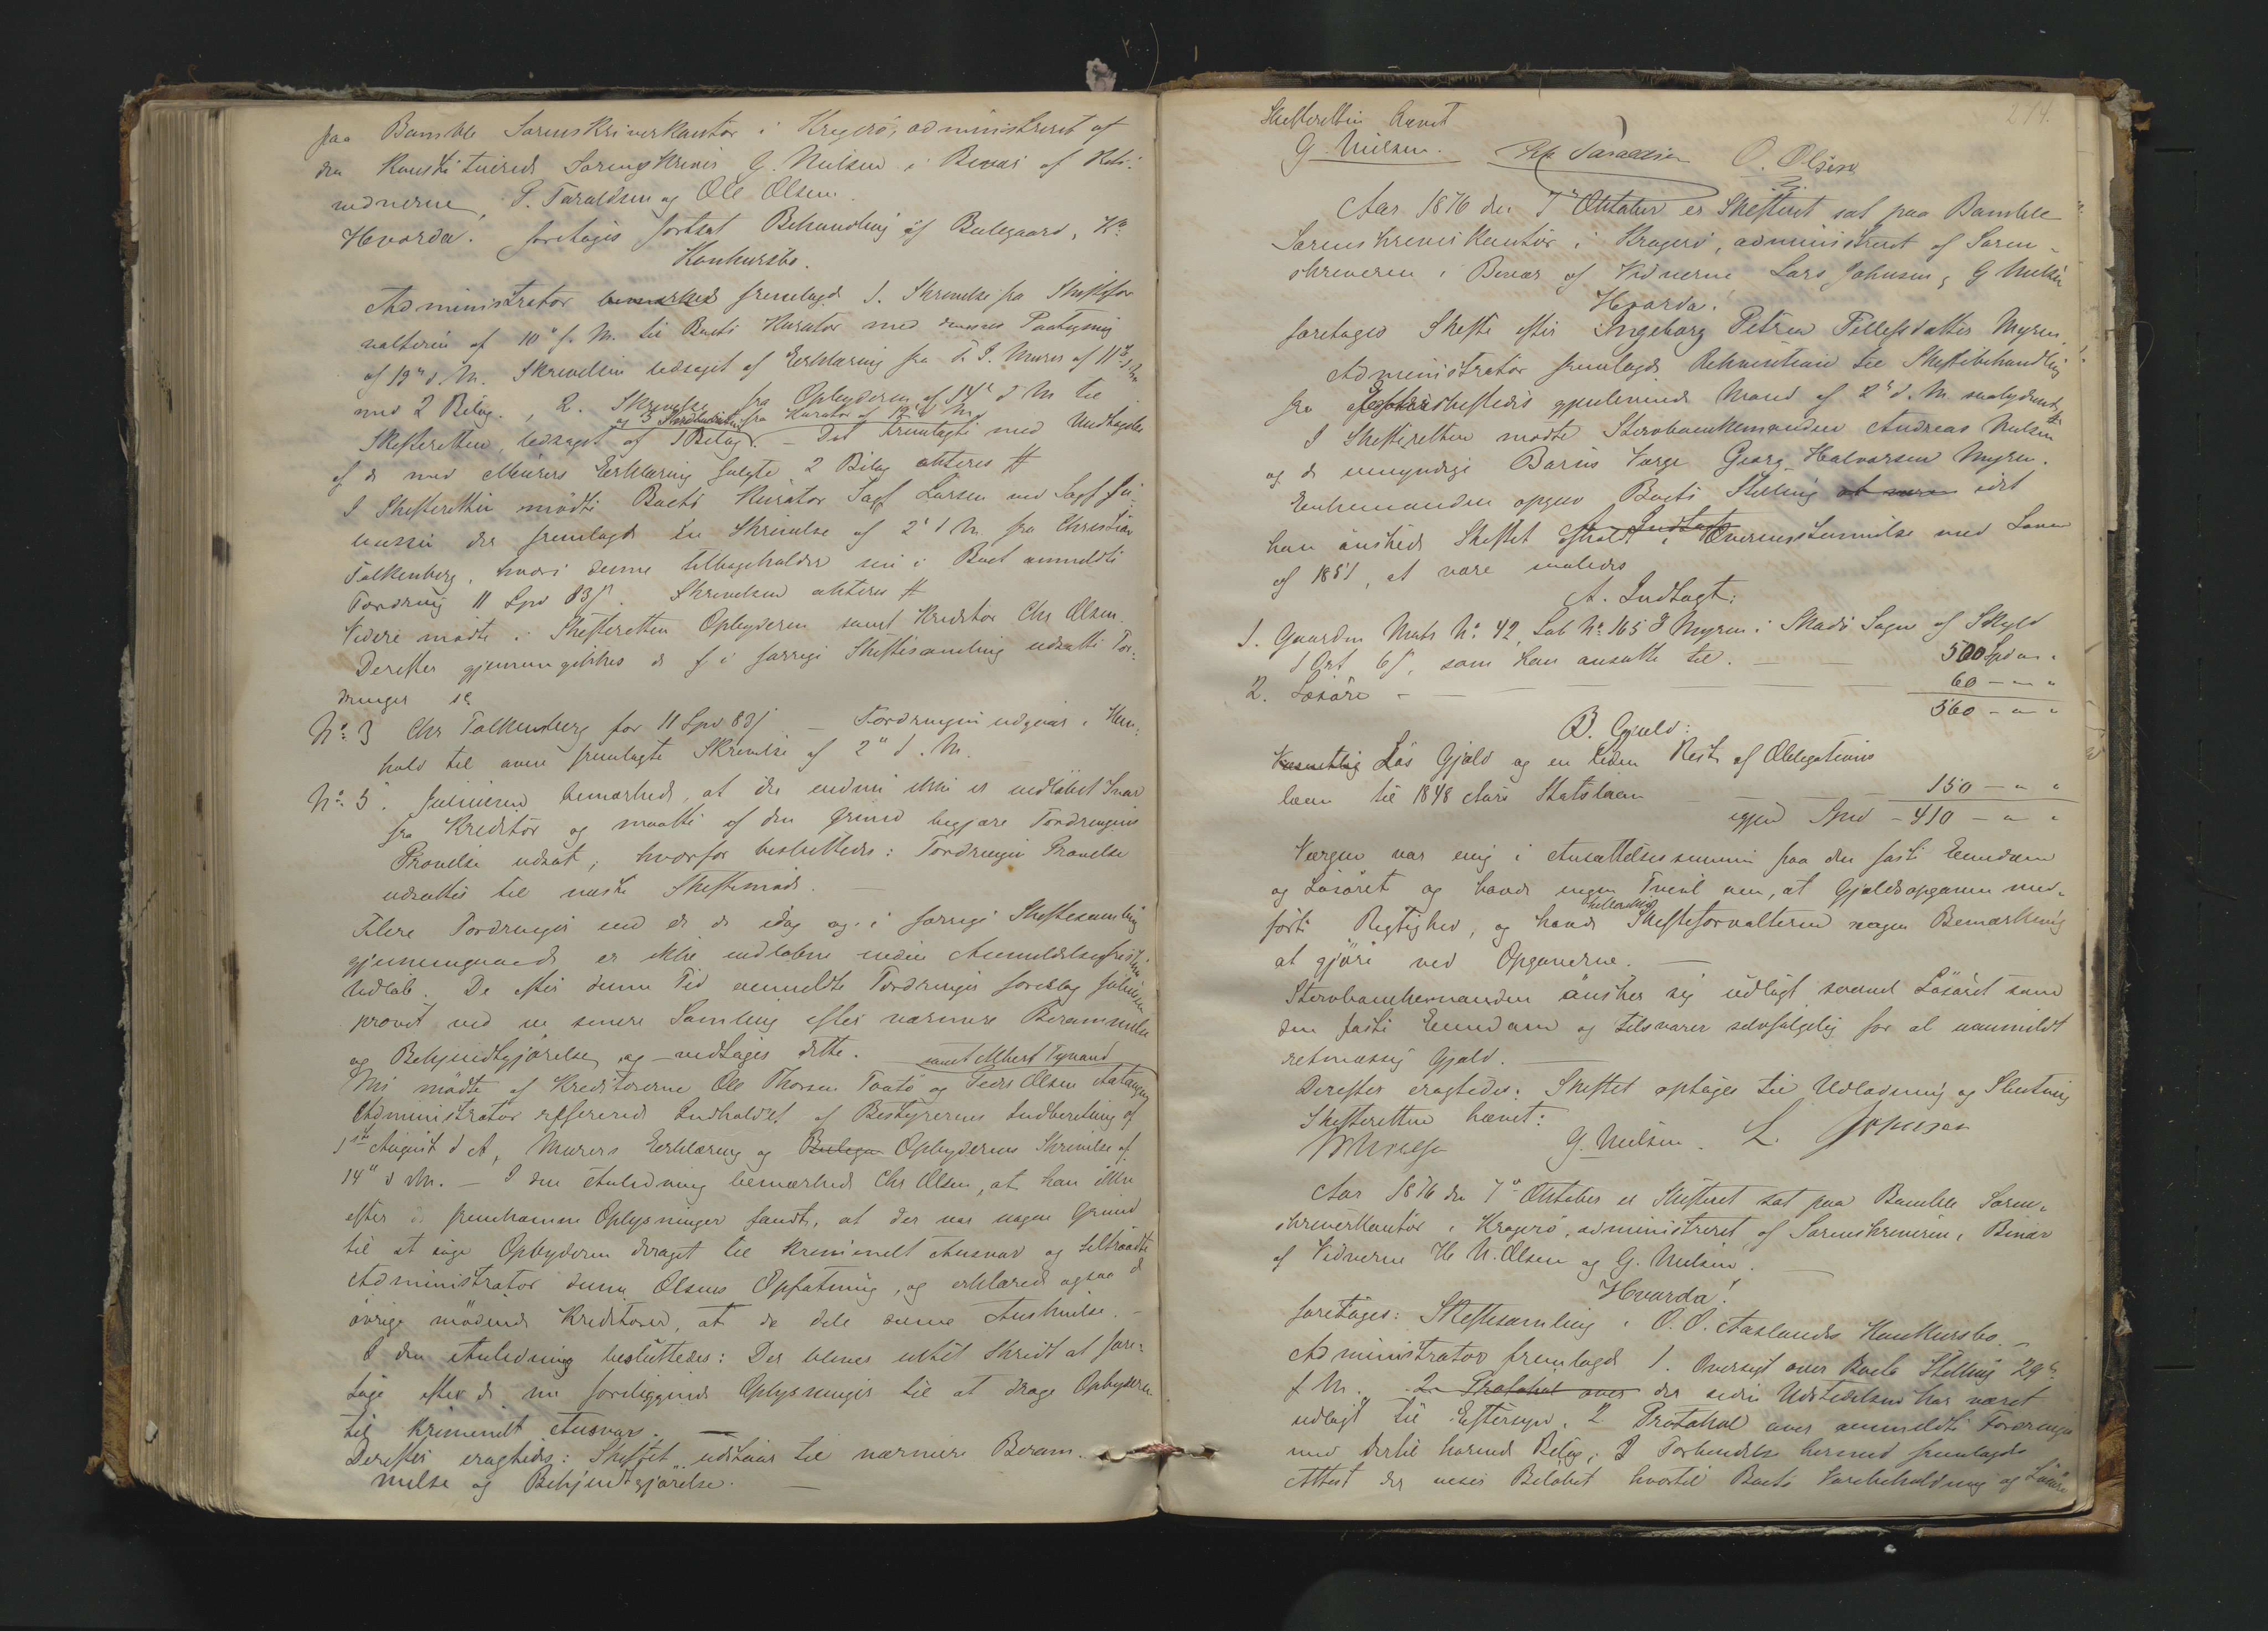 paa Bamble Sorenskriverkontor i Kragerö, administreret af
den konstituerede Sorenskriver G. Nielsen i Bevær af Rets-
vidnerne, P. Taraldsen og Ole Olsen
Hvorda: foretoges fortsat Behandling af
Konkursbo.
Administrator bemærked fremlagde 1. Skrivelse fra Skiftefor
valteren af 10de f. M. til Boets Kurator med dennes Paategning
af 19de d. M. Skrivelsen ledsaget af Erklæring fra af 11te d. M.
med 2 Bilag., 2. Skrivelse fra Opbyderen af 14de d M til
og 3 Indberetning fra Kurator af d M.
Skifteretten, ledsaget af 1 Bilag. – Det Fremlagte med Undtagelse
af de med Murers Erklæring fulgte 2 Bilag akteres #
I Skifteretten mödte Boets Kurator Sagf Larsen ved Sagf Ju-
liussen der fremlagde en Skrivelse af 2d d M. fra Christian
Falkenberg, hvori denne tilbageholder sin i Boet anmeldte
Fordring 11 Spd 83 ß. Skrivelsen akteres #
Videre mödte i Skifteretten Opbyderen samt Kreditor Chr Olsen.
Derefter gjennemgikkes de f i forrige Skiftesamling udsatte For-
dringer
No 3 Chr Falkenberg for 11 Spd 83 ß – Fordringen udgaar i Hen-
hold til oven fremlagte Skrivelse af 2d d. M.
No 5. Juliussen bemærkede, at der endnu ikke er indlöbet Svar
fra Kreditor og maatte af den Grund begjære Fordringens
Prövelse udsat; hvorfor besluttedes: Fordringens Prövelse
udsættes til næste Skiftemöde.
Flere Fordringer end de idag og i forrige Skiftesamling
gjennemgaaede er ikke indlöbne inden Anmeldelsesfristens
Udlöb. De efter denne Tid anmeldte Fordringer foreslog Juliussen
prövet ved en senere Samling efter nærmere Berammelse
og Bekjendtgjörelse, og vedtoges dette. samt Albert Tyvand
Nu mödte af Kreditorerne Ole Thorsen Taatö og Peder Olsen
Administrator refererede Indholdet af Bestyrerens Indberetning af
1ste August d A, Murers Erklæring og Opbyderens Skrivelse af
14de d M. – I den Anledning bemærkede Chr Olsen, at han ikke
efter de fremkomne Oplysninger fandt, at der var nogen Grund
til at söge Opbyderen draget til kriminelt Ansvar og tiltraadte
Administrator denne Olsens Opfatning, og erklærede ogsaa de
övrige mödende Kreditorer, at de dele denne Anskuelse. –
I den Anledning besluttedes: Der bliver intet Skridt at fore-
tage efter de nu foreliggende Oplysninger til at drage Opbyderen
til kriminelt Ansvar. –
Derefter eragtedes: Skiftet udstaar til nærmere Beram-
melse og Bekjendtgjörelse. –
274.
Skifteretten hævet
G. Nielsen. Taraldsen O. Olsen
Aar 1876 den 7de Oktober er Skifteret sat paa Bamble
Sorenskriverkontor i Kragerö, administreret af Soren-
skriveren i Bevær af Vidnerne Lars Johnsen, G Nielsen
Hvorda:
foretoges Skifte efter Ingeborg Petrea Pellessdatter Myren.
Administrator fremlagde Rekvisition til Skiftebehandling
fra gjenlevende Mand af 2den d. M. saalydende
I Skifteretten mödte Stervboenkemanden Andreas Nielsen
og de umyndige Börns Værge Georg Halvorsen Myren.
Enkemanden opgav Boets Stilling at være idet
han önskede Skiftet afholdt i Overensstemmelse med Loven
af 1851, at være saaledes
A. Indtægt:
1. Gaarden Matr No. 42, Löb No. 165 d Myren i Skadö Sogn af Skyld
1 Ort 6 ß, som han ansatte til. – – 500 Spd " "
2. Lösöre – – – 60 – " "
560 – " "
B. Gjæld:
Lös Gjæld og en liden Rest af Obligations
laan til 1848 Aars Statslaan – 150 – " "
igjen Spd – 410 – " "
Værgen var enig i Ansættelsessummen paa den faste Eiendom
og Lösöret og havde ingen Tvivl om, at Gjældsopgaven med-
förte Rigtighed, og havde Skifteforvalteren nogen Bemærkning
at gjöre ved Opgaverne. –
Stervboenkemanden önsker sig udlagt saavel Lösöret som
den faste Eiendom og tilsvarer selvfölgelig for al uanmeldt
retmæssig Gjæld. –
Derefter eragtedes: Skiftet optages til Udlodning og Slutning
Skifteretten hævet:
G. Nielsen. L. Johnsen
Aar 1876 den 7de Oktober er Skifteret sat paa Bamble Soren-
skriverkontor i Kragerö, administreret af Sorenskriveren, i Bevær
af Vidnerne H. N. Olsen og G. Nielsen. –
Hvorda!
foretoges: Skiftesamling i O. O. Aaslands Konkursbo. –
Administrator fremlagde 1. Oversigt over Boets Stilling 29de
f. M. 2. Protokol over der siden Udstedelsen har været
udlagt til Eftersyn. 2 Protokol over anmeldte Fordringer
med dertil hörende Bilag; I Forbindelse hermed fremlagdes
Attest der viser Belöbet hvortil Boets Varebeholdning og Lösöre